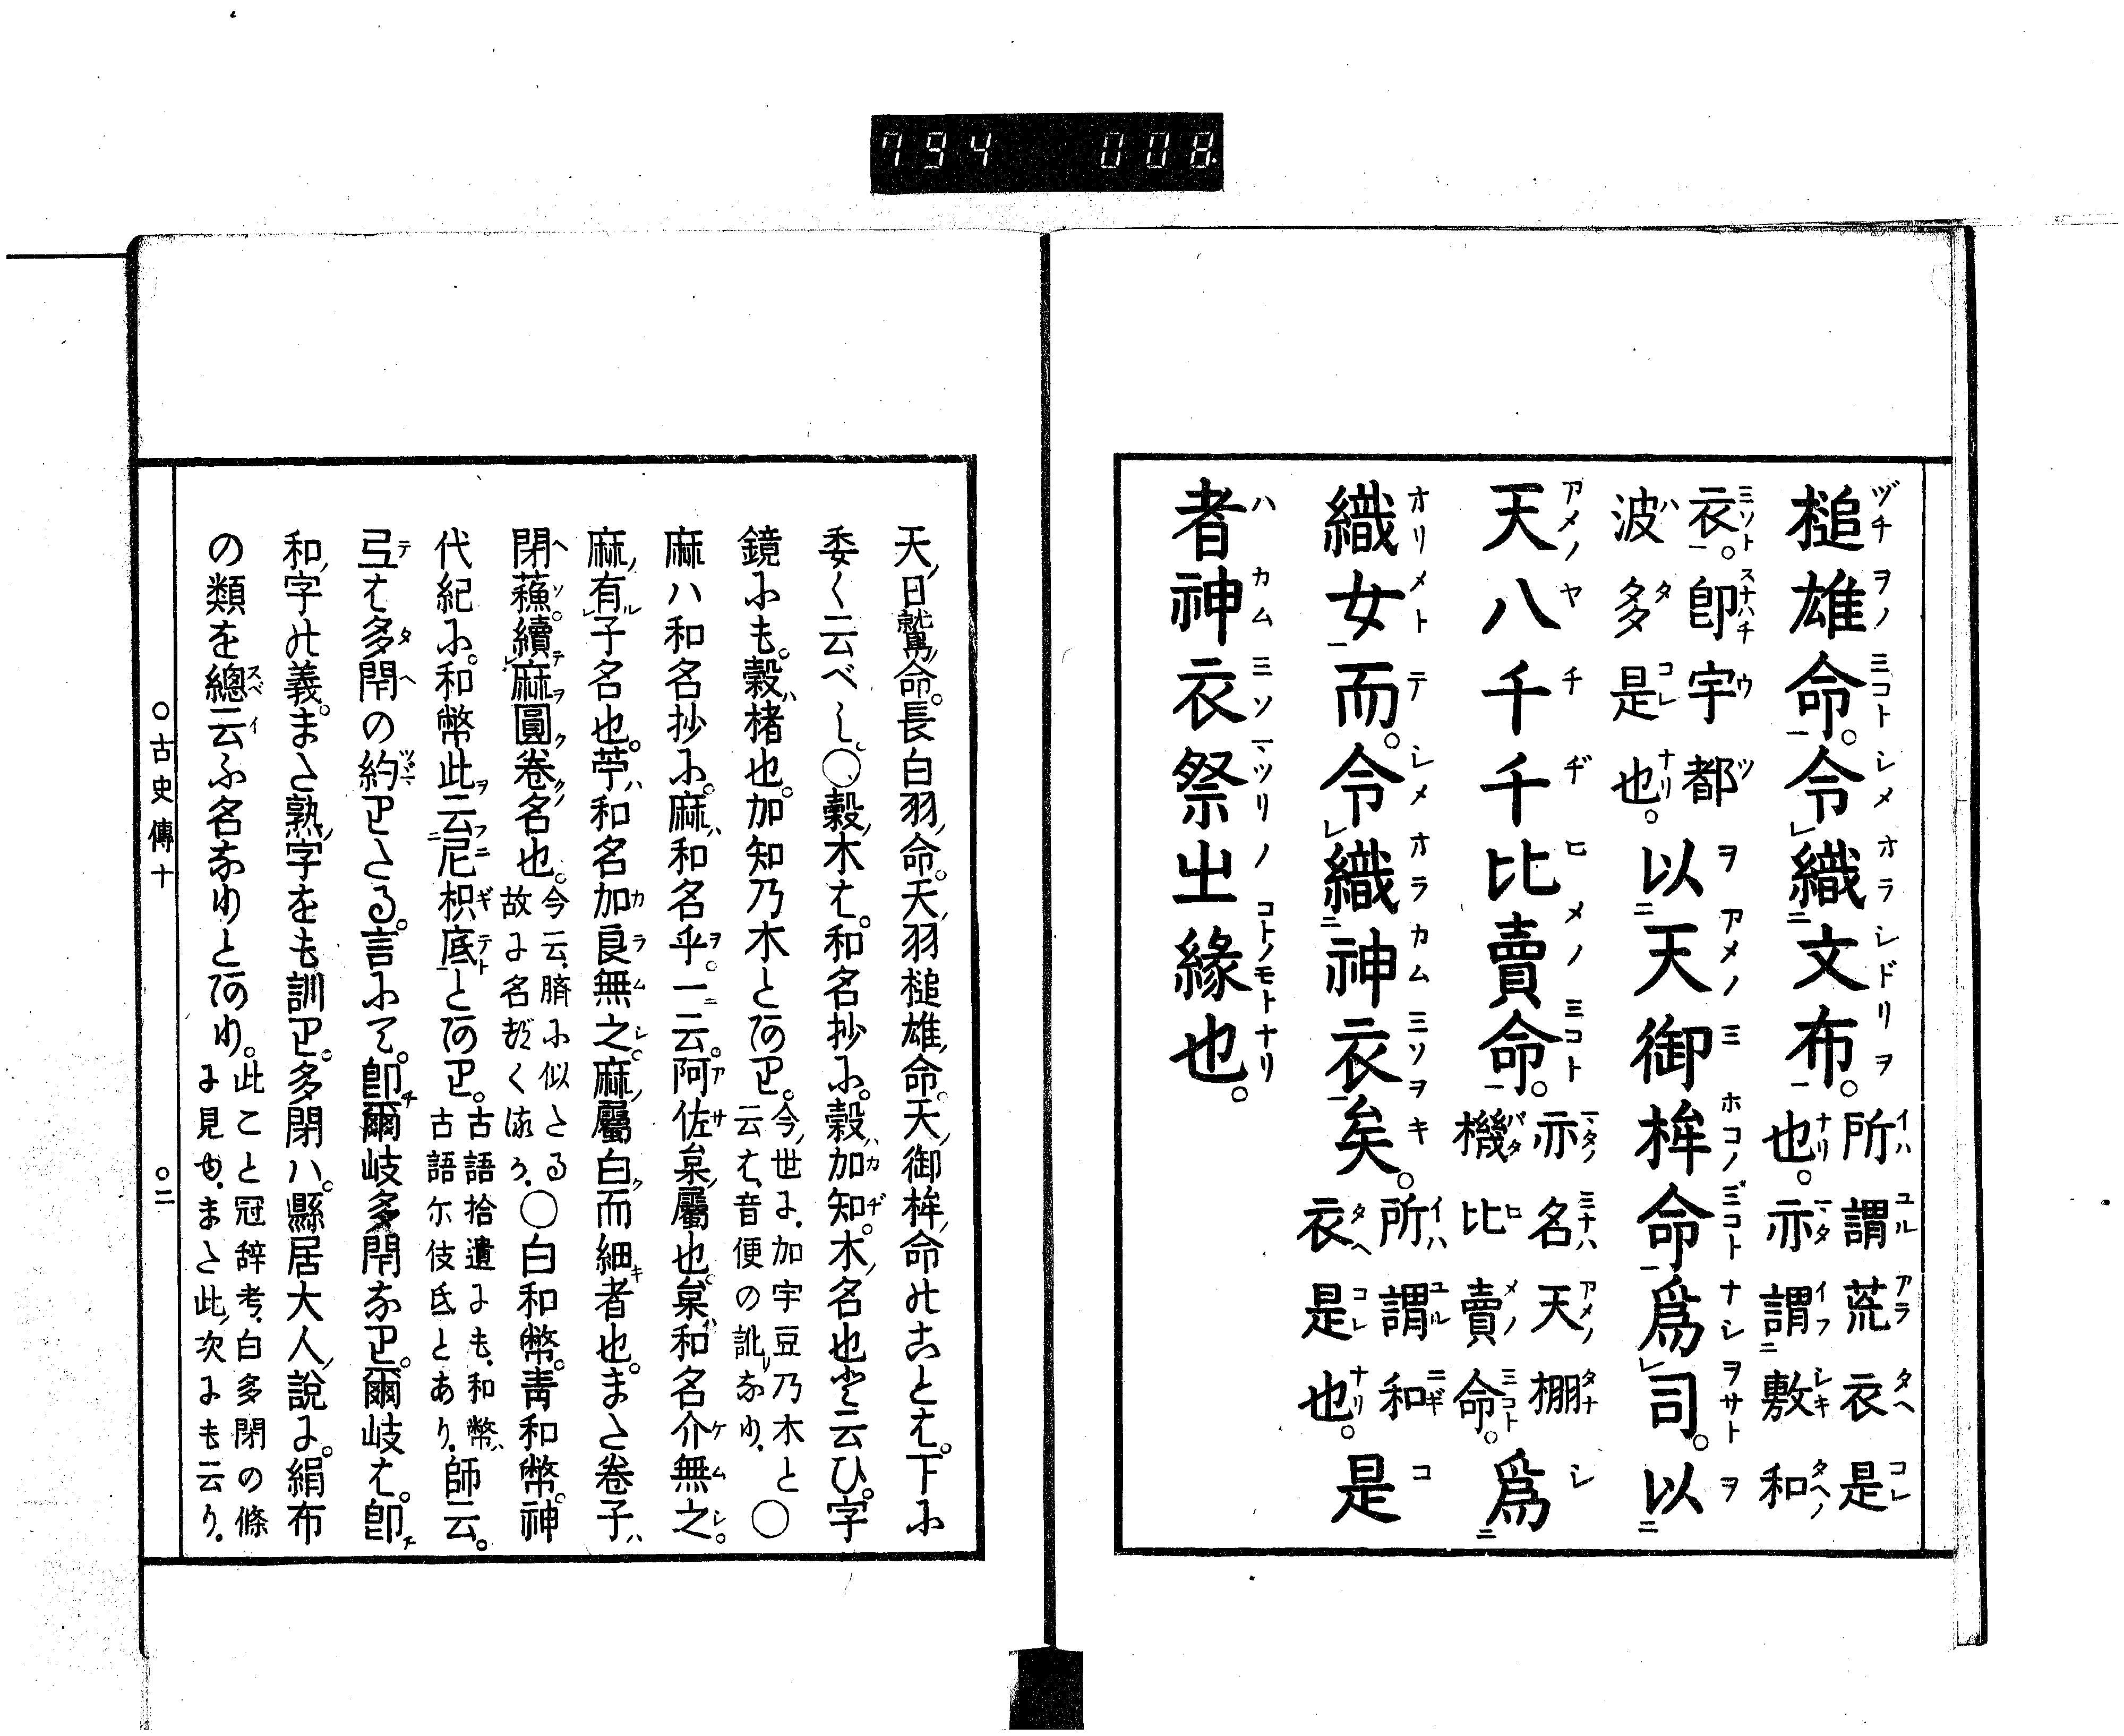 794 008
槌雄命。令織文布。所謂荒衣是也。亦謂敷和
衣。卽宇都波多是也。以天御桙命爲司。以
天八千千比賣命。亦名天棚機比賣命。爲
織女而。令織神衣矣。所謂和衣是也。是
者神衣祭出緣也。
天日鷲命。長白羽命。天羽槌雄命。天御桙命のことは。下に
委く云べし。○穀木は。和名抄に。穀加知。木名也と云ひ。字
鏡にも。穀楮也。加知乃木とあり。今世に、加宇豆乃木と云は、音便の訛なり、○
麻ハ和名抄に。麻和名乎。一云。阿佐枲屬也。枲和名介無之。
麻有子名也。苧和名加良無之。麻屬白而細者也。また卷子
閉蘓續麻圓卷名也。今云、臍に似たる故に名づくるか、○白和幣。靑和幣。神
代紀に。和幣此云尼枳底とあり。古語拾遺にも、和幣、古語尓伎氐とあり、師云。
弖は多閇の約りたる。言にて。卽爾岐多閇なり。爾岐は。卽
和字の義。また熟字をも訓り。多閇ハ。縣居大人說に。絹布
の類を總云ふ名なりとあり。此こと冠辞考、白多閇の條に見ゆ、また此次にも云り、
○古史傳十 ○二